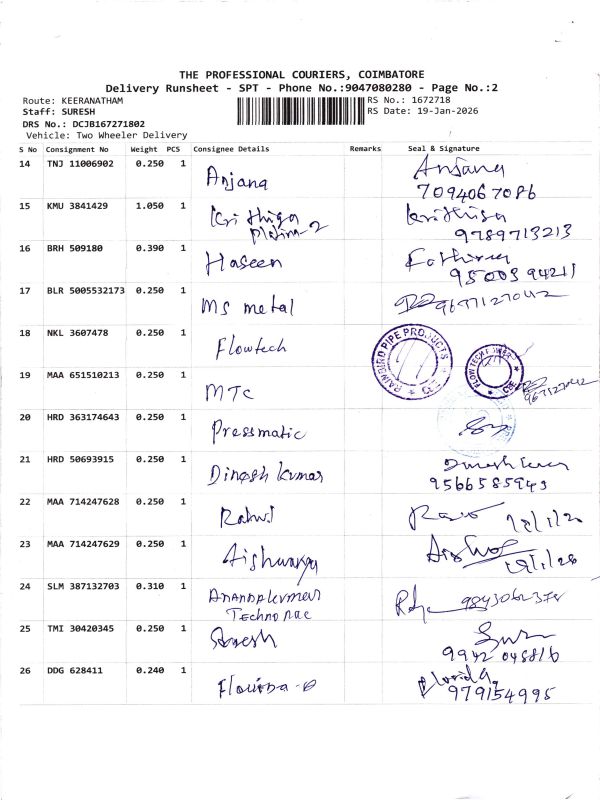 THE PROFESSIONAL COURIERS, COIMBATORE
Delivery Runsheet - SPT - Phone No.:9047080280 - Page No.:2
Route: KEERANATHAM
RS No.: 1672718
Staff: SURESH
RS Date: 19-Jan-2026
DRS No.: DCJB167271802
Vehicle: Two Wheeler Delivery
S No Consignment No Weight PCS Consignee Details Remarks Seal & Signature
14 TNJ 11006902 0.250 1 Anjana Anjana
7094067086
15 KMU 3841429 1.050 1 Krithiga Krithiga
Platina-2 9789713213
16 BRH 509180 0.390 1 Haseen
9500394211
17 BLR 5005532173 0.250 1 MS metal 9677127042
18 NKL 3607478 0.250 1 Flowtech RAINBIRD PIPE PRODUCTS
FLOW TECH POWER CBE
19 MAA 651510213 0.250 1 MTC 9677127042
20 HRD 363174643 0.250 1 Pressmatic
21 HRD 50693915 0.250 1 Dinesh kumar
9566585943
22 MAA 714247628 0.250 1 Rahul
23 MAA 714247629 0.250 1 Aishwarya
24 SLM 387132703 0.310 1 Anandakumar
Techno
25 TMI 30420345 0.250 1
9942045816
26 DDG 628411 0.240 1
979154995